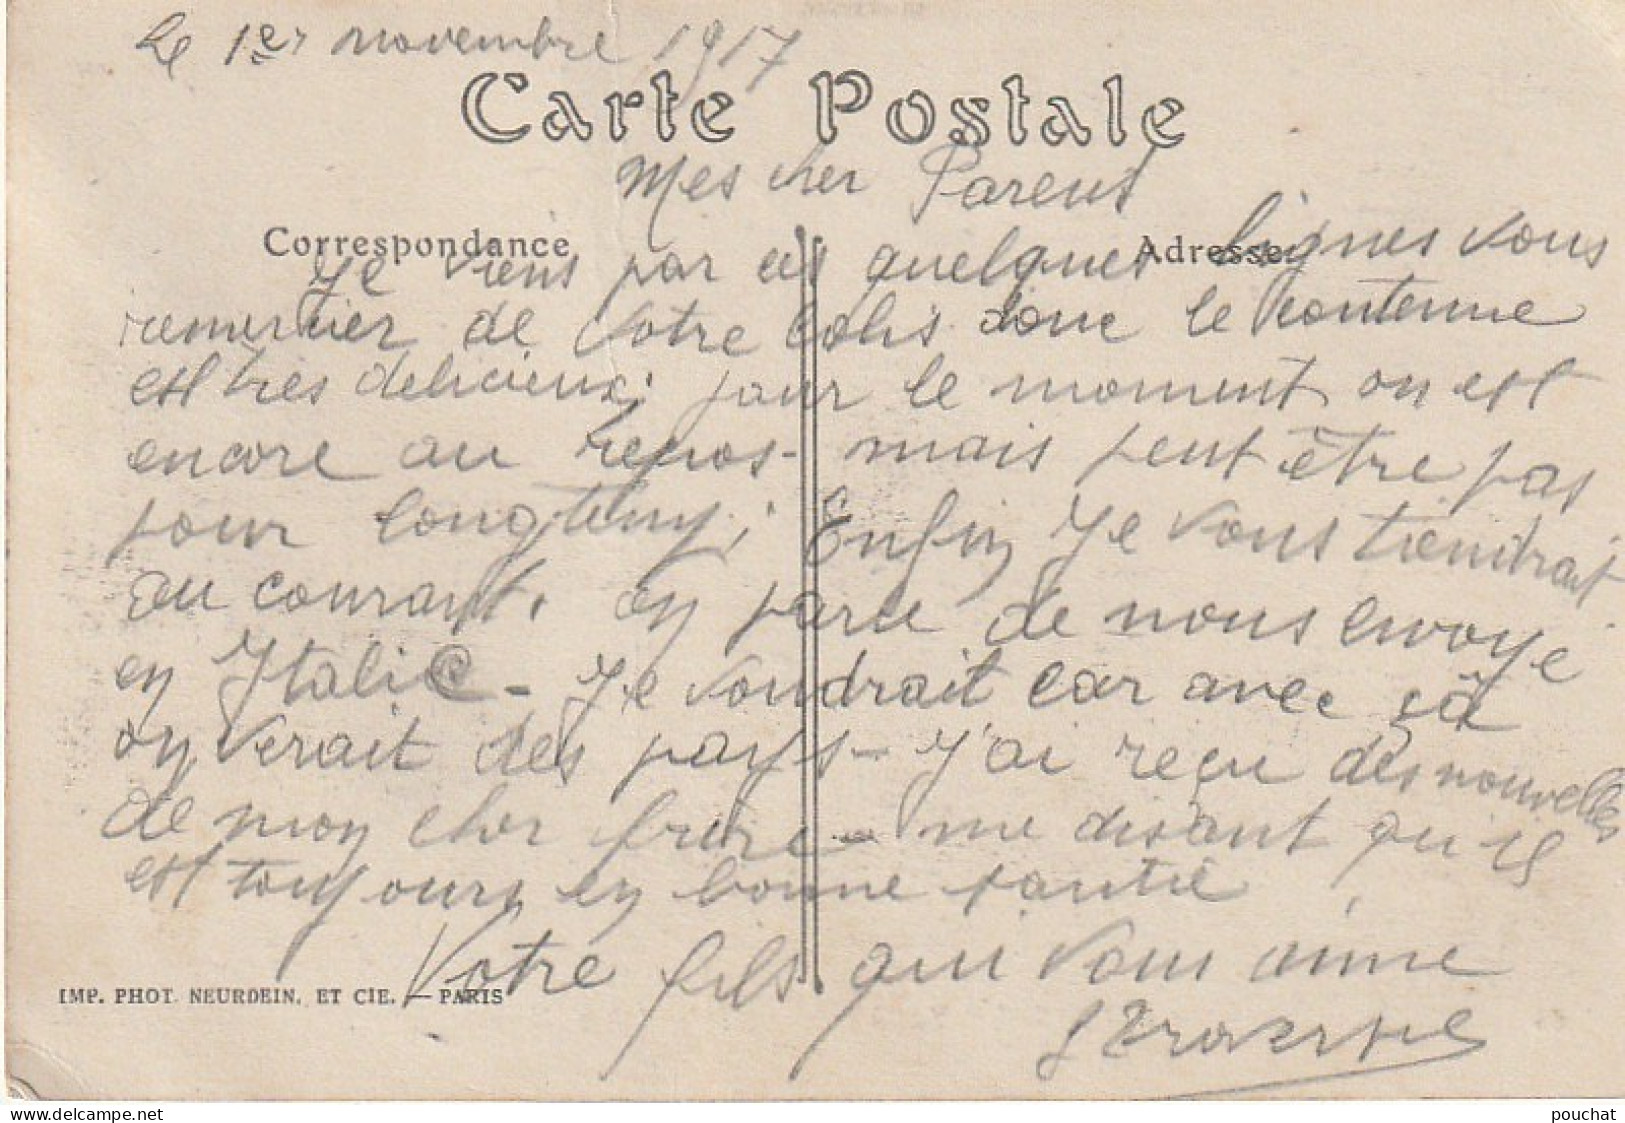 Le 1er novembre 1917
Carte Postale
Mes cher Parent
Correspondance
Adresse
Je viens par ces quelques lignes vous
remercier de votre colis donc le contenue
est très delicieux; pour le moment on est
encore au repos - mais peut être pas
pour longtemps; Enfin Je vous tiendrait
au courant. on parle de nous envoyé
en Italie - Je voudrait car avec çà
on verait des pays - J'ai reçu des nouvelles
de mon cher frère - me disant qu'il
est toujours en bonne santé
Votre fils qui vous aime
IMP. PHOT. NEURDEIN. ET CIE. — PARIS
delcampe.net
pouchat